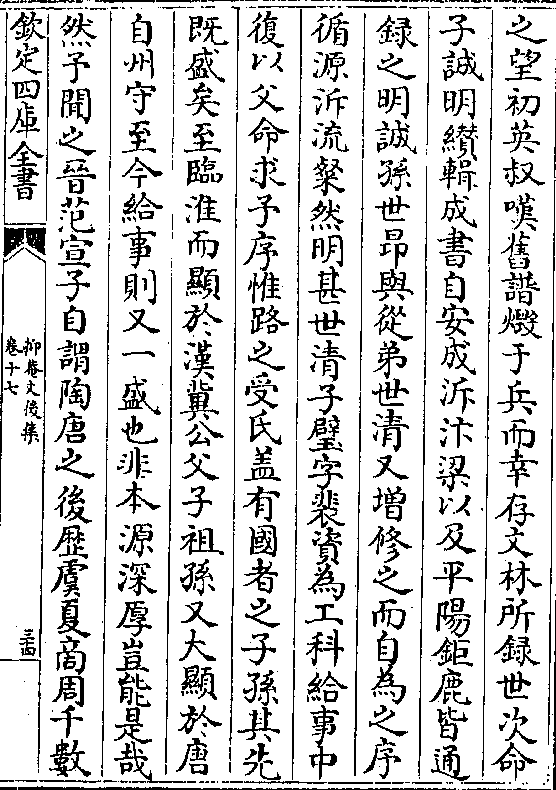 之望初英叔嘆舊譜燬于兵而幸存文林所録世次命
子誠明纉輯成書自安成泝汴梁以及平陽鉅鹿皆通
録之明誠孫世昻與從弟世清又增修之而自為之序
循源泝流粲然明甚世清子璧字裴資為工科給事中
復以父命求予序惟路之受氏盖有國者之子孫其先
既盛矣至臨淮而顯於漢冀公父子祖孫又大顯於唐
自州守至今給事則又一盛也非本源深厚豈能是哉
然予聞之晉范宣子自謂陶唐之後歴虞夏商周千數
欽定四庫全書
抑菴文後集
卷十七
三十四